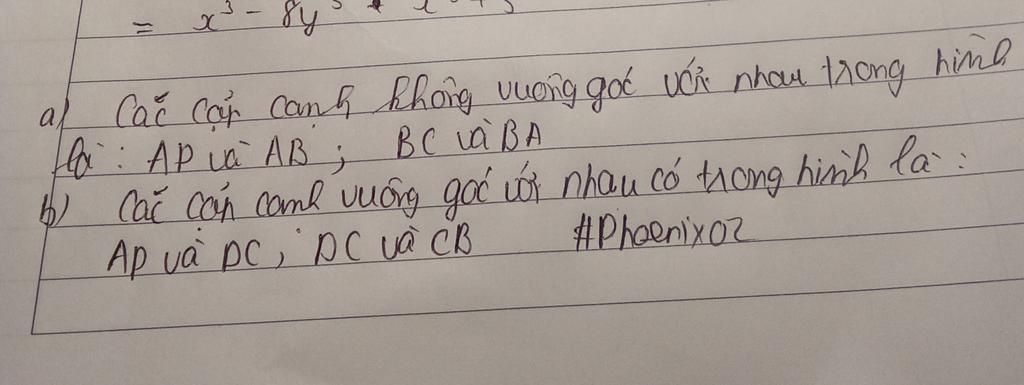 = x³ - 8y³
a) Các cặp cạnh không vuông góc với nhau trong hình
là : AD và AB ; BC và BA
b) Các cặp cạnh vuông góc với nhau có trong hình là :
AD và DC ; DC và CB #Phoenix02